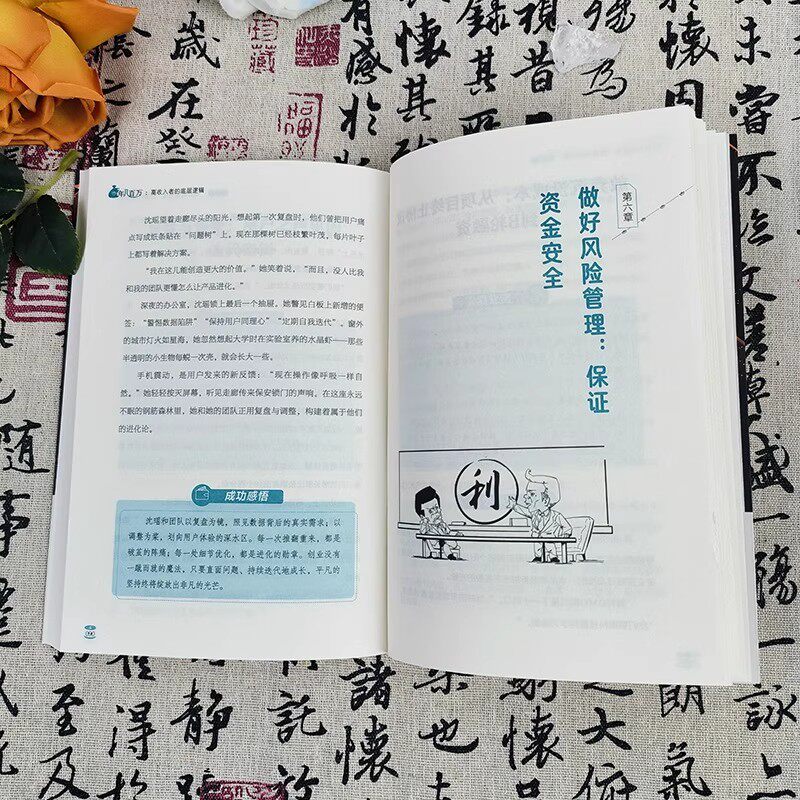 年入百万：高收入者的底层逻辑
沈瑶望着走廊尽头的阳光，想起第一次复盘时，他们曾把用户痛
点写成纸条贴在“问题树”上，现在那棵树已经枝繁叶茂，每片叶子
上都写着解决方案。
“我在这儿能创造更大的价值，”她笑着说，“而且，没人比我
和我的团队更懂怎么让产品进化。”
深夜的办公室，沈瑶锁上最后一个抽屉，她瞥见白板上新增的便
签：“警惕数据陷阱”“保持用户同理心”“定期自我迭代”。窗外
的城市灯火如星海，她忽然想起大学时在实验室养的水晶虾——那些
半透明的小生物每蜕一次壳，就会长大一些。
手机震动，是用户发来的新反馈：“现在操作像呼吸一样自
然。”她轻轻按灭屏幕，听见走廊传来保安锁门的声响。在这座永远
不眠的钢筋森林里，她和她的团队正用复盘与调整，构建着属于他们
的进化论。
成功感悟
沈瑶和团队以复盘为镜，照见数据背后的真实需求；以
调整为桨，划向用户体验的深水区。每一次推翻重来，都是
破茧的阵痛；每一处细节优化，都是进化的勋章。创业没有
一蹴而就的魔法，只要直面问题、持续迭代地成长，平凡的
坚持终将绽放出非凡的光芒。
第六章
做好风险管理：保证
资金安全
利
歲
在
有感於
懷其
視昔
懷因
未嘗不
文
隨
事
至及
得於
靜
託
諸懷
也
懷
之大俯
朗氣
一觴
一詠
珍藏
福